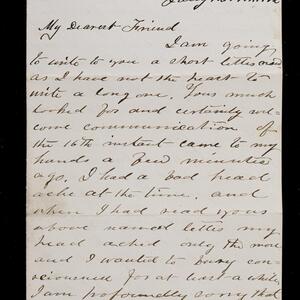 My Dearest Friend
I am going
to write to you a short letter
as I have not the heart to
write a long one. Your much
looked for and certainly wel-
come communication of
the 16th instant came to my
hands a few minutes
ago. I had a bad head
ache at the time, and
when I had read yours
above named letter my
head ached only the more
and I wanted to bury con-
sciousness for at least a while
I am profoundly sorry that